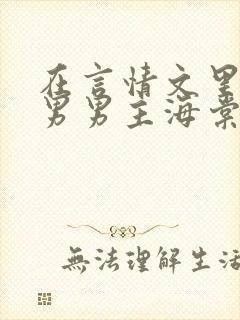 在言情文里
男男主海棠
無法理解生活